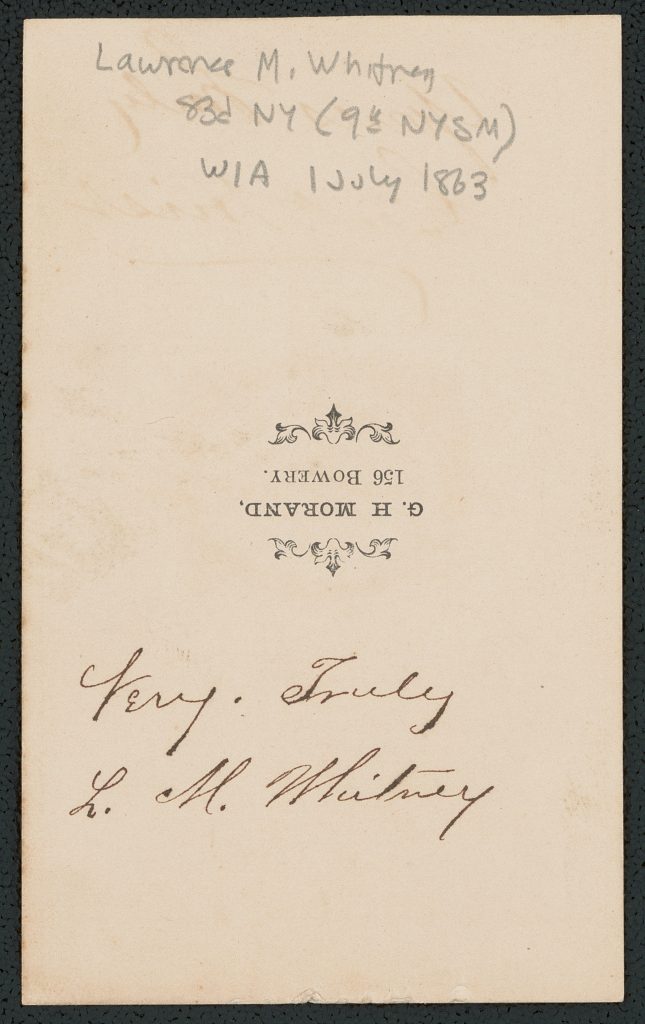 Lawrence M. Whitney
83d NY (9th NYSM)
WIA 1 July 1863
G. H MORAND,
156 BOWERY.
Very. Truly
L. M. Whitney